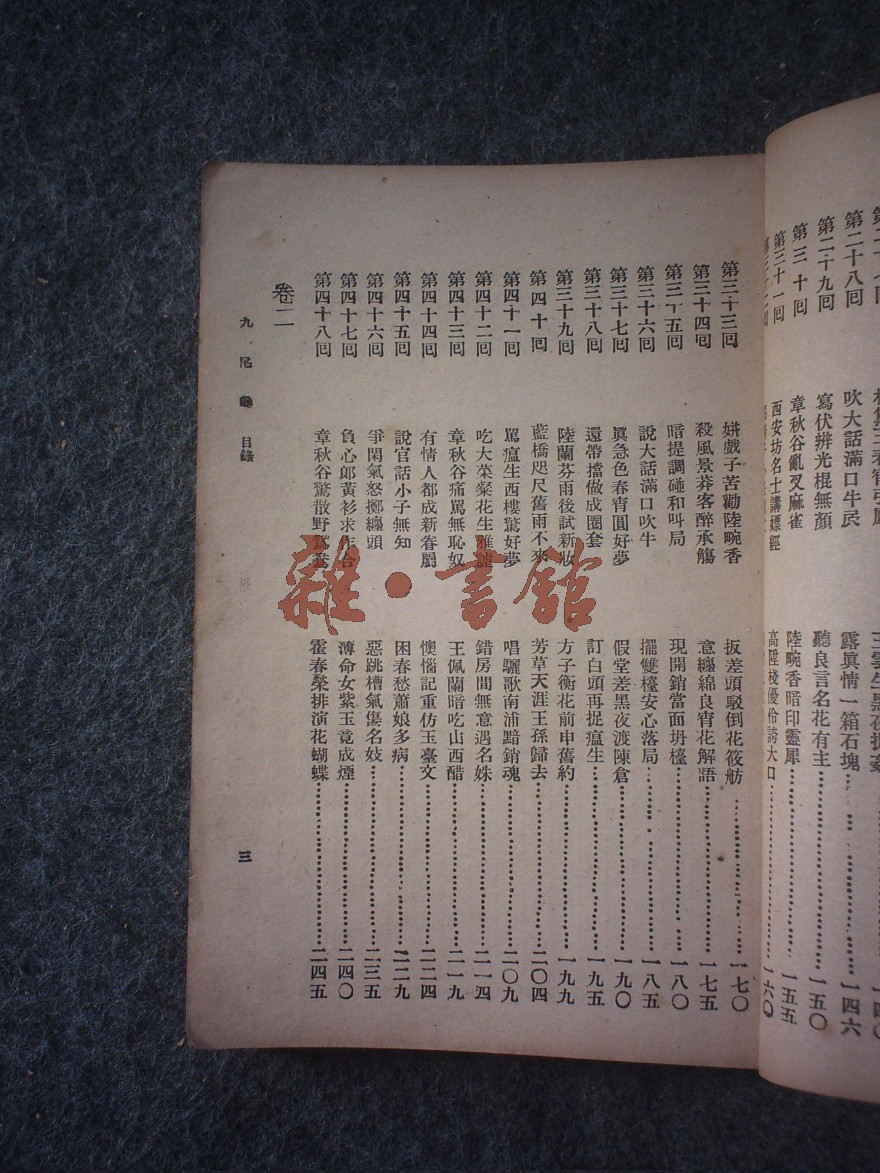 第二十八回 吹大話滿口牛 露眞情一箱石塊 一四六
第二十九回 寫伏辨光棍無顏 聽良言名花有主 一五〇
第三十回 章秋谷亂叉麻雀 陸畹香暗印靈犀 一五五
第三十一回 西安坊名士講嫖經 高陞棧優伶誇大口 一六〇
第三十三回 姘戲子苦勸陸畹香 扳差頭駁倒花筱舫 一七〇
第三十四回 殺風景莽客醉承觴 意纏綿良宵花解語 一七五
第三十五回 暗提調碰和叫局 現開銷當面坍檯 一八〇
第三十六回 說大話滿口吹牛 擺雙檯安心落局 一八五
第三十七回 眞急色春宵圓好夢 假堂差黑夜渡陳倉 一九〇
第三十八回 還帶擋做成圈套 訂白頭再捉瘟生 一九五
第三十九回 陸蘭芬雨後試新妝 方子衡花前申舊約 一九九
第四十回 藍橋咫尺舊雨不來 芳草天涯王孫歸去 二〇四
第四十一回 罵瘟生西樓驚好夢 唱驪歌南浦黯銷魂 二〇九
第四十二回 吃大菜粲花生雅謔 錯房間無意遇名姝 二一四
第四十三回 章秋谷痛罵無恥奴 王佩蘭暗吃山西醋 二一九
第四十四回 有情人都成新眷屬 懊惱記重仿玉臺文 二二四
第四十五回 說官話小子無知 困春愁蕭娘多病 二二九
第四十六回 爭閑氣怒擲纏頭 惡跳槽氣傷名妓 二三五
第四十七回 負心郞黃衫求作合 薄命女紫玉竟成煙 二四〇
第四十八回 章秋谷驚散野鴛鴦 霍春榮排演花蝴蝶 二四五
卷二
九尾龜 目錄 三
雜·書館